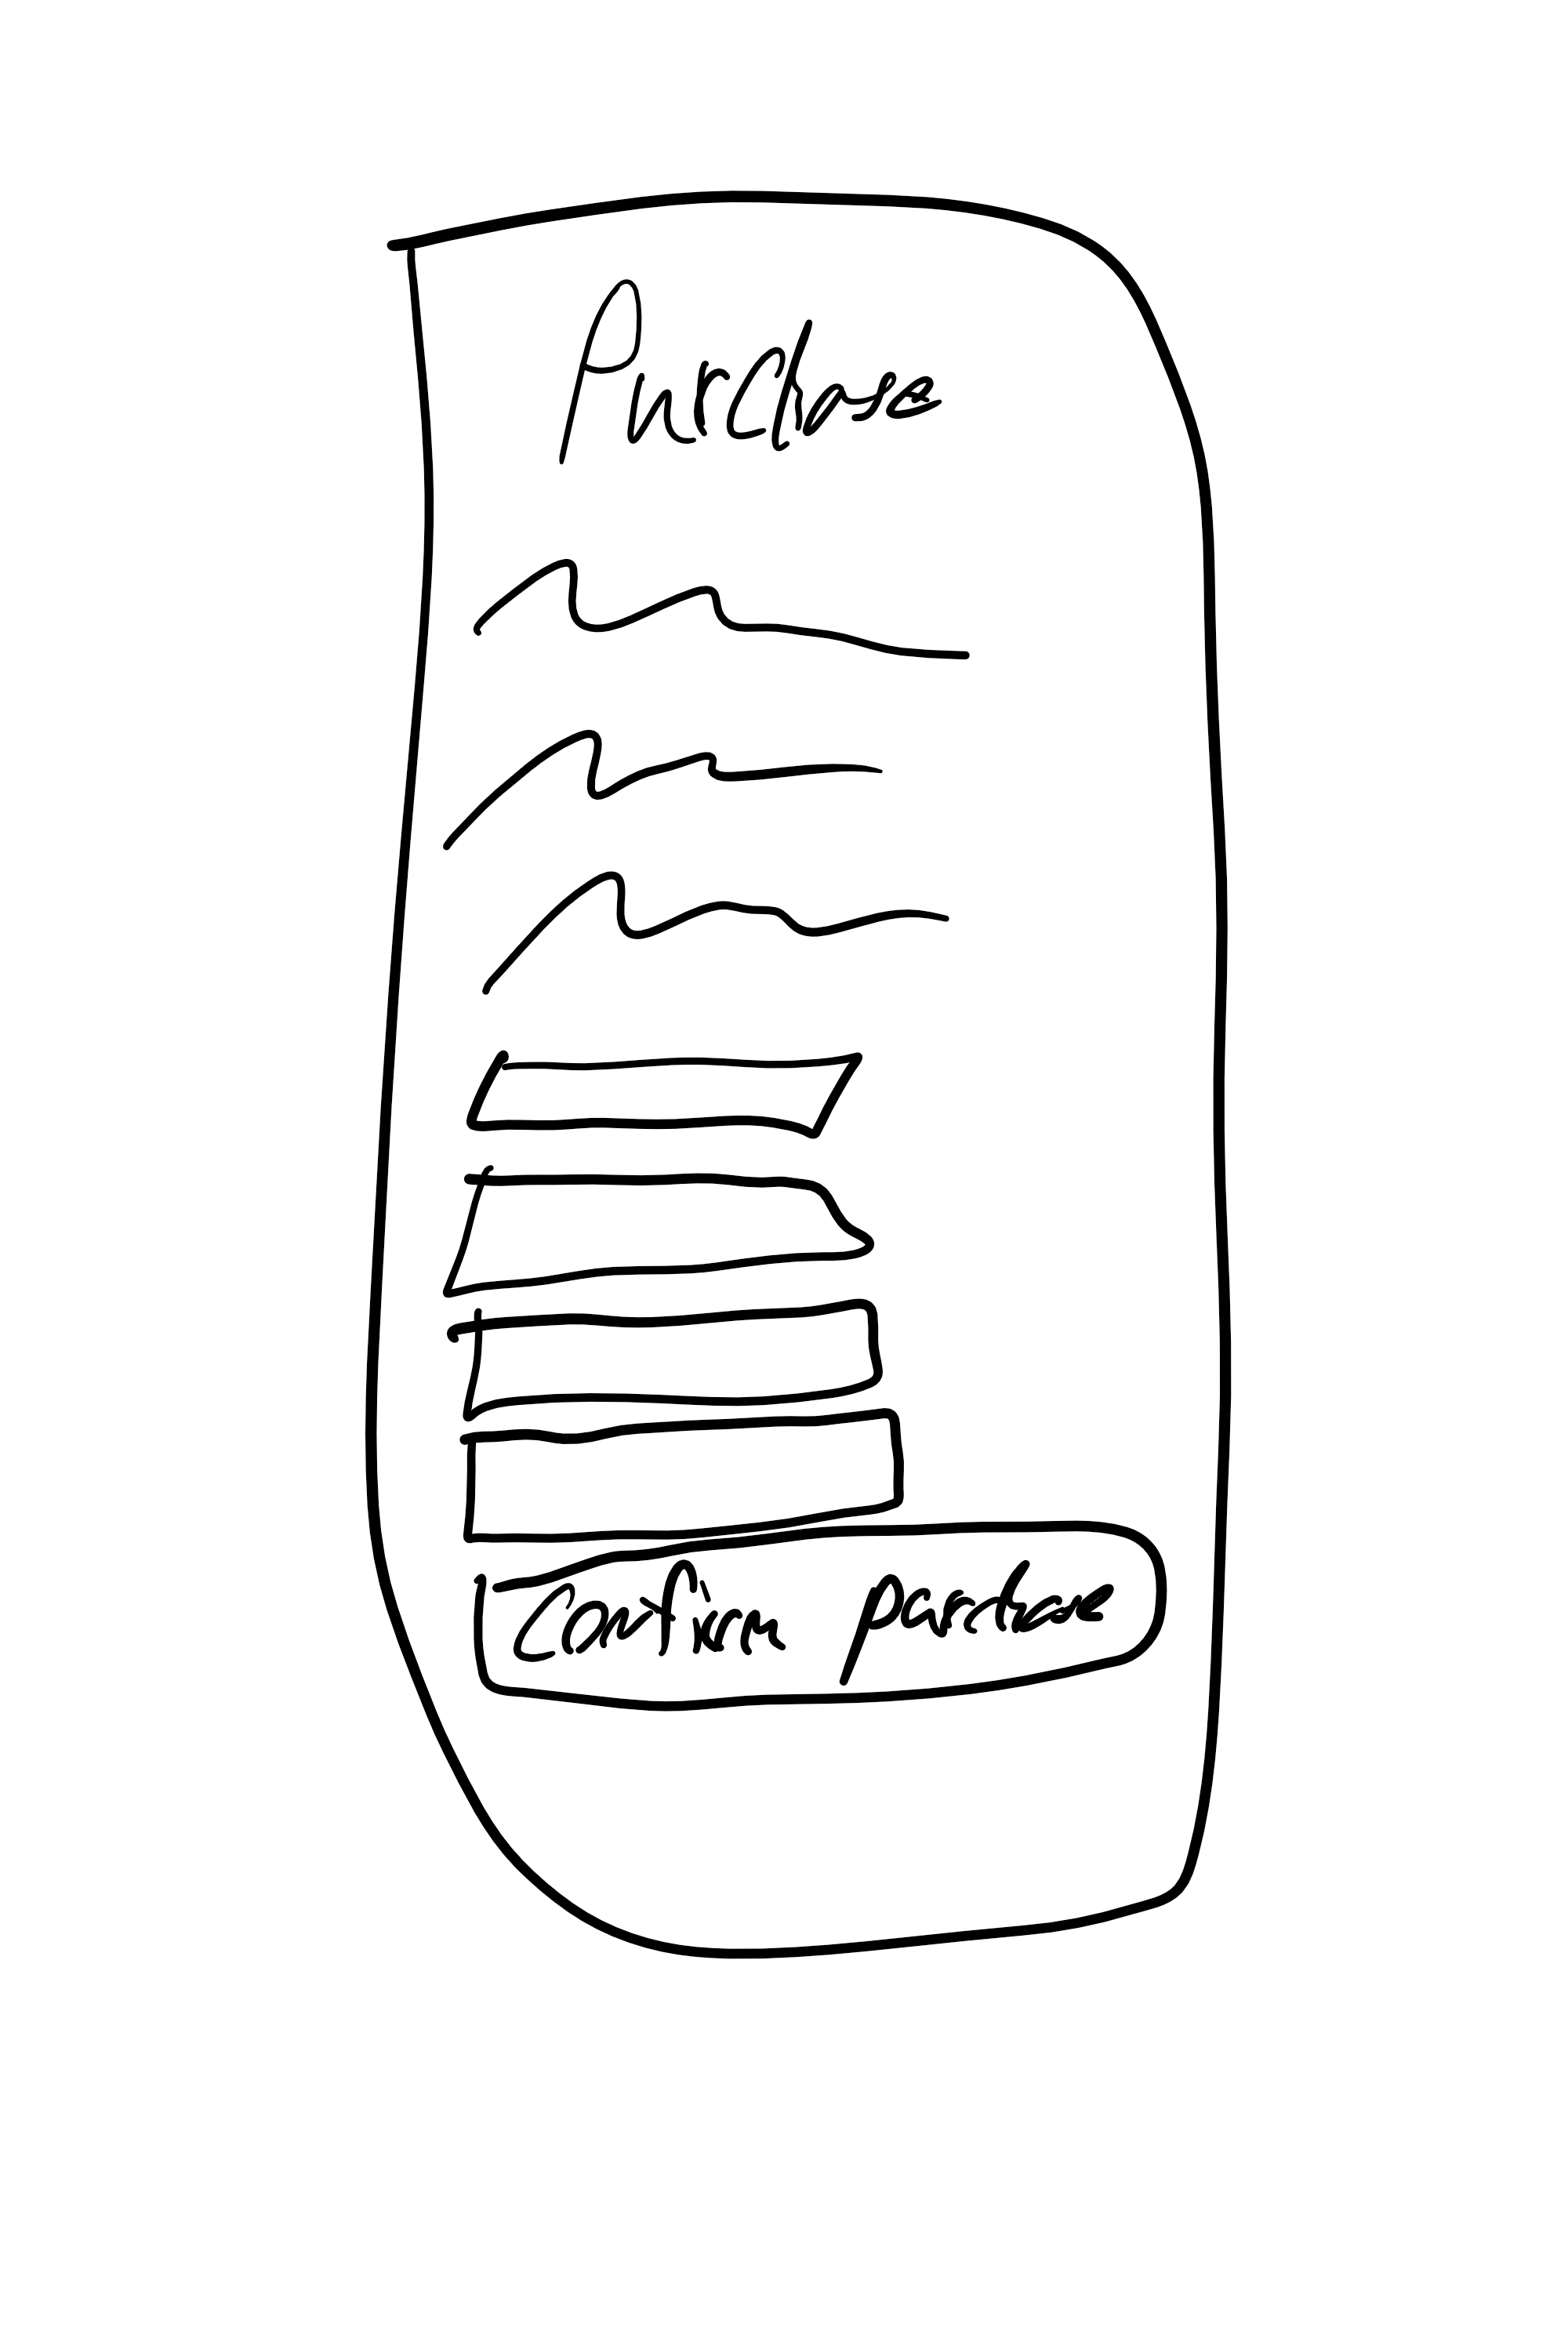 Purchase
Confirm purchase